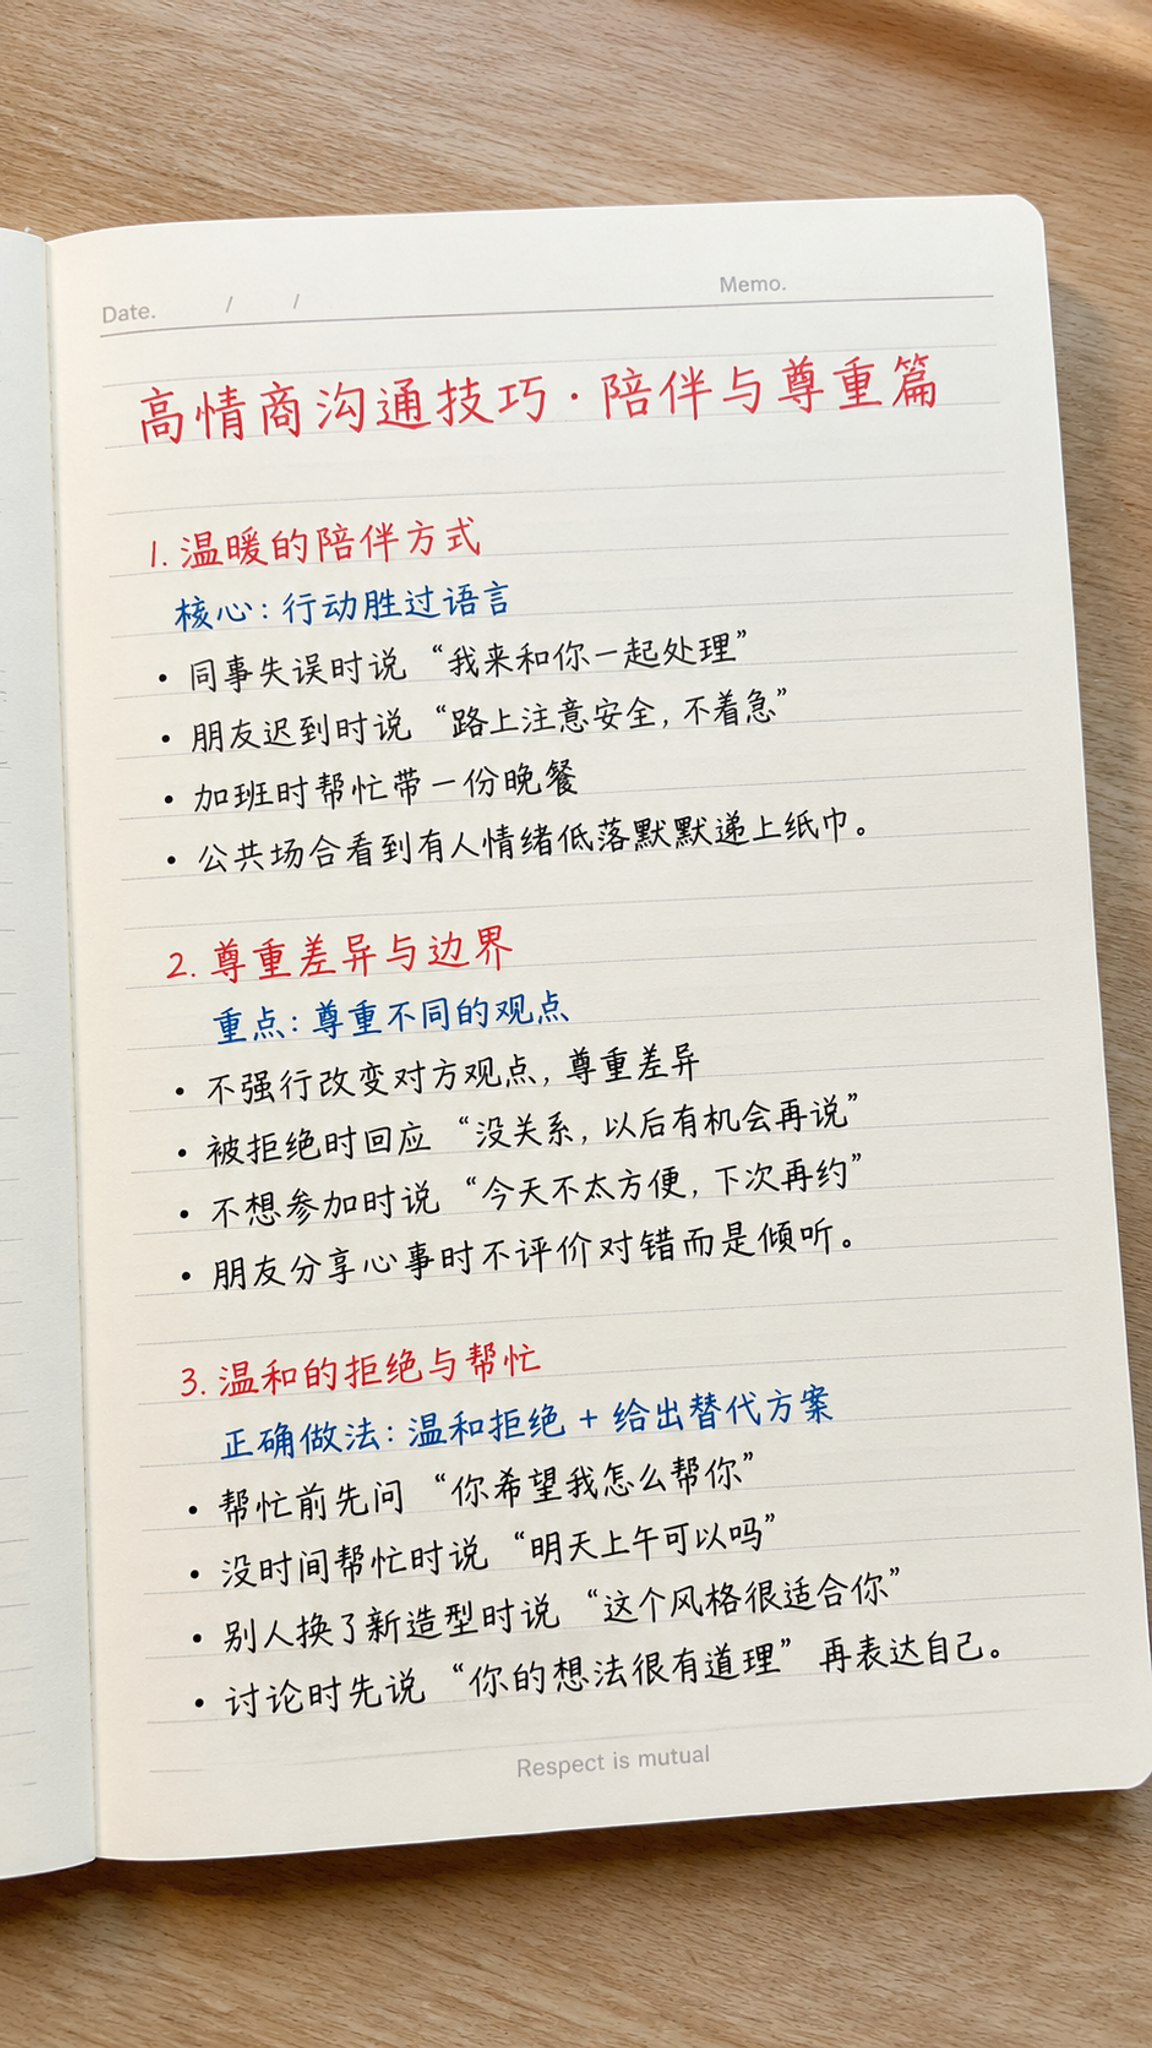 Date. / / Memo.
高情商沟通技巧·陪伴与尊重篇
1. 温暖的陪伴方式
核心：行动胜过语言
• 同事失误时说 “我来和你一起处理”
• 朋友迟到时说 “路上注意安全，不着急”
• 加班时帮忙带一份晚餐
• 公共场合看到有人情绪低落默默递上纸巾。
2. 尊重差异与边界
重点：尊重不同的观点
• 不强行改变对方观点，尊重差异
• 被拒绝时回应 “没关系，以后有机会再说”
• 不想参加时说 “今天不太方便，下次再约”
• 朋友分享心事时不评价对错而是倾听。
3. 温和的拒绝与帮忙
正确做法：温和拒绝 + 给出替代方案
• 帮忙前先问 “你希望我怎么帮你”
• 没时间帮忙时说 “明天上午可以吗”
• 别人换了新造型时说 “这个风格很适合你”
• 讨论时先说 “你的想法很有道理” 再表达自己。
Respect is mutual